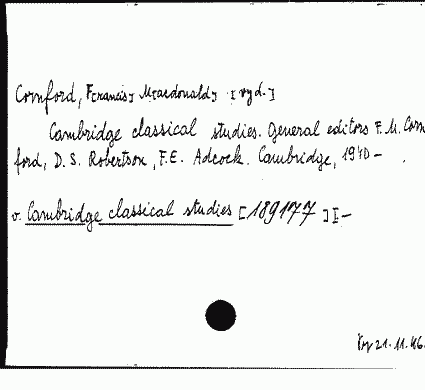 Cornford, F[rancis] M[acdonald] [vyd.]
Cambridge classical studies. General editors F. M. Corn
ford, D. S. Robertson, F. E. Adcock. Cambridge, 1940 - .
v. Cambridge classical studies [189177] I -
21.11.46.